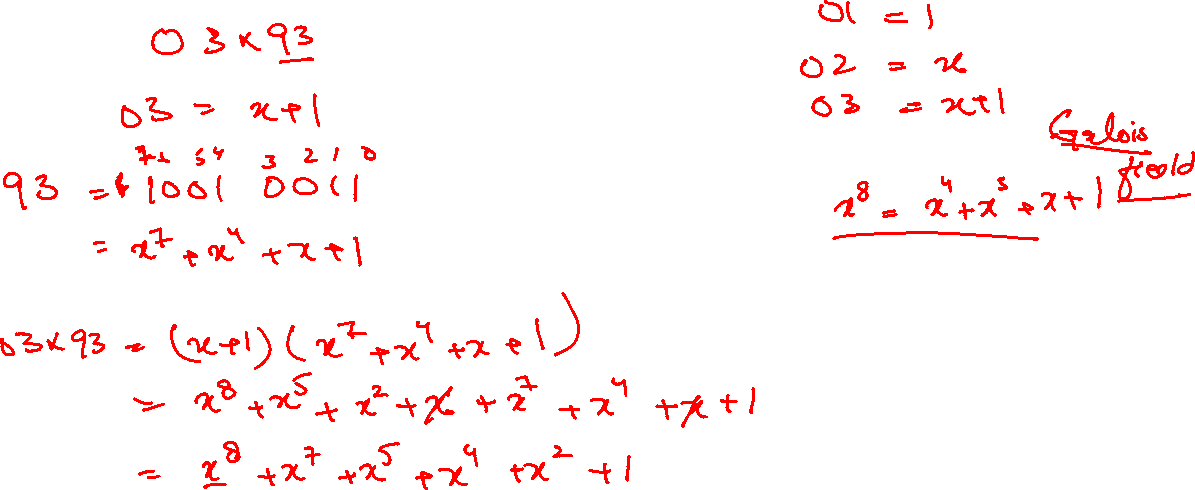 03 × 93
03 = x+1
7 6 5 4 3 2 1 0
93 = 1001 0011
= x⁷ + x⁴ + x + 1
03×93 = (x+1) (x⁷ + x⁴ + x + 1)
= x⁸ + x⁵ + x² + x + x⁷ + x⁴ + x + 1
= x⁸ + x⁷ + x⁵ + x⁴ + x² + 1
01 = 1
02 = x
03 = x+1
Galois
field
x⁸ = x⁴ + x³ + x + 1